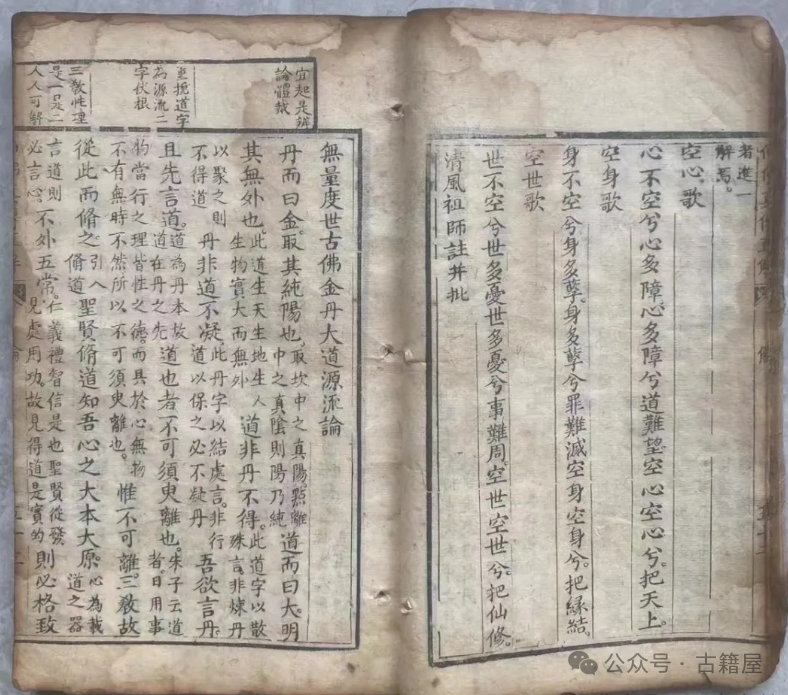 者進一
解焉。
空心歌
心不空兮心多障。心多障兮道難望。空心空心兮。把天上。
空身歌
身不空兮身多孽。身多孽兮罪難滅。空身空身兮。把緣結。
空世歌
世不空兮世多憂。世多憂兮事難周。空世空世兮。把仙修。
清風祖師註并批
宜起是辨
論體裁
重挽道字
為源流二
字伏根
三教性理
是一是二
人人可解
無量度世古佛金丹大道源流論
丹而曰金。取其純陽也。取坎中之真陽。點離
中之真陰則陽乃純道而曰大。明
其無外也此道生天生地生人
生物實大而無外道非丹不得。此道字以散
殊言。非煉丹
以聚之則
不得道丹非道不凝此丹字以結處言。非行
道以保之必不凝丹吾欲言丹。
且先言道。道為丹本故
道在丹之先道也者不可須臾離也。朱子云道
者日用事
物當行之理皆性之德。而具於心無物
不有無時不然所以不可須臾離也。惟不可離。三教故
從此而脩之引入
脩道聖賢脩道知吾心之大本大原。心為載
道之器
言道則
必言心。不外五常。仁義禮智信是也聖賢從發
見處用功。故見得道是實的則必格致